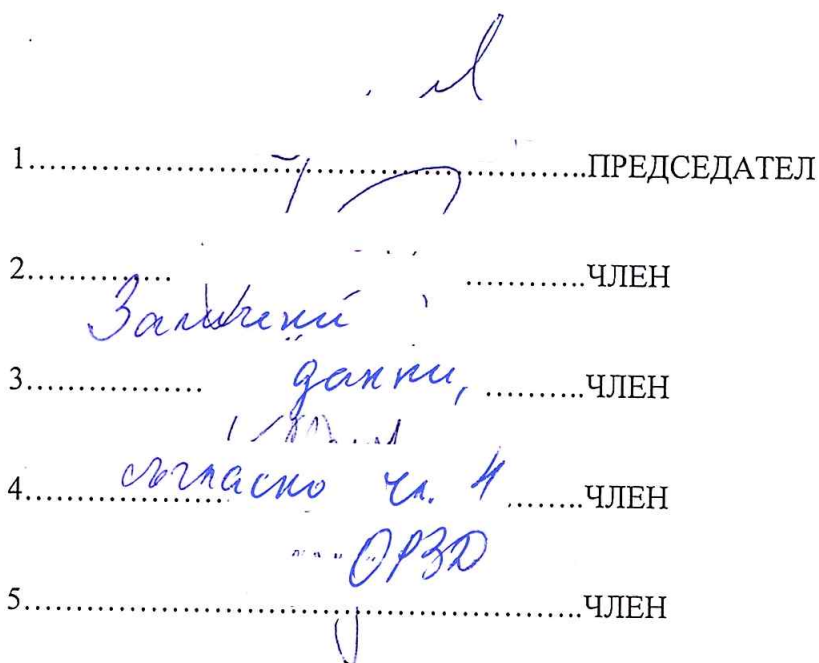 1..............................................................ПРЕДСЕДАТЕЛ
2............... ............ЧЛЕН
Заличени
3................ данни, ..........ЧЛЕН
4..................... съгласно чл. 4 ........ЧЛЕН
ОРЗД
5..............................................................ЧЛЕН